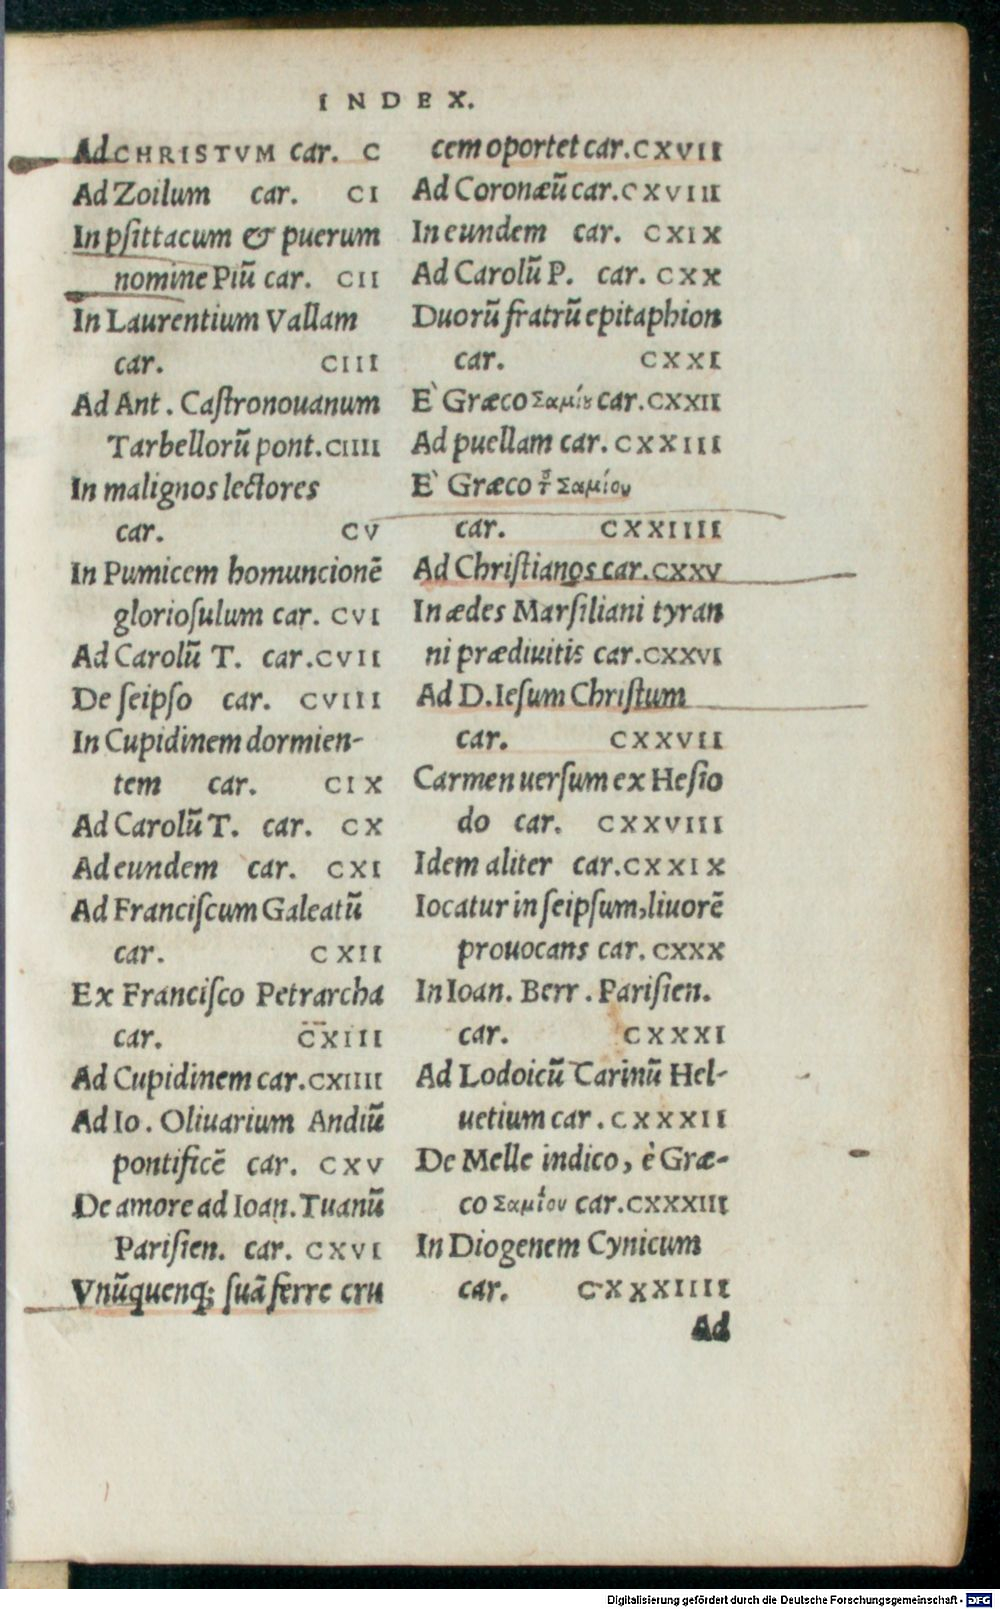 INDEX.
Ad CHRISTVM car. C
Ad Zoilum car. CI
In psittacum & puerum
nomine Piũ car. CII
In Laurentium Vallam
car. CIII
Ad Ant. Castronouanum
Tarbellorũ pont. CIIII
In malignos lectores
car. CV
In Pumicem homuncionẽ
gloriosulum car. CVI
Ad Carolũ T. car. CVII
De seipso car. CVIII
In Cupidinem dormien-
tem car. CIX
Ad Carolũ T. car. CX
Ad eundem car. CXI
Ad Franciscum Galeatũ
car. CXII
Ex Francisco Petrarcha
car. CXIII
Ad Cupidinem car. CXIIII
Ad Io. Oliuarium Andiũ
pontificẽ car. CXV
De amore ad Ioan. Tuanũ
Parisien. car. CXVI
Vnũquenq; suã ferre cru
cem oportet car. CXVII
Ad Coronæũ car. CXVIII
In eundem car. CXIX
Ad Carolũ P. car. CXX
Duorũ fratrũ epitaphion
car. CXXI
E` Græco Σαμίου car. CXXII
Ad puellam car. CXXIII
E` Græco Σαμίου
car. CXXIIII
Ad Christianos car. CXXV
In ædes Marsiliani tyran
ni prædiuitis car. CXXVI
Ad D. Iesum Christum
car. CXXVII
Carmen uersum ex Hesio
do car. CXXVIII
Idem aliter car. CXXIX
Iocatur in seipsum, liuorẽ
prouocans car. CXXX
In Ioan. Berr. Parisien.
car. CXXXI
Ad Lodoicũ Carinũ Hel-
uetium car. CXXXII
De Melle indico, è Græ-
co Σαμίου car. CXXXIII
In Diogenem Cynicum
car. CXXXIIII
Ad
Digitalisierung gefördert durch die Deutsche Forschungsgemeinschaft - DFG